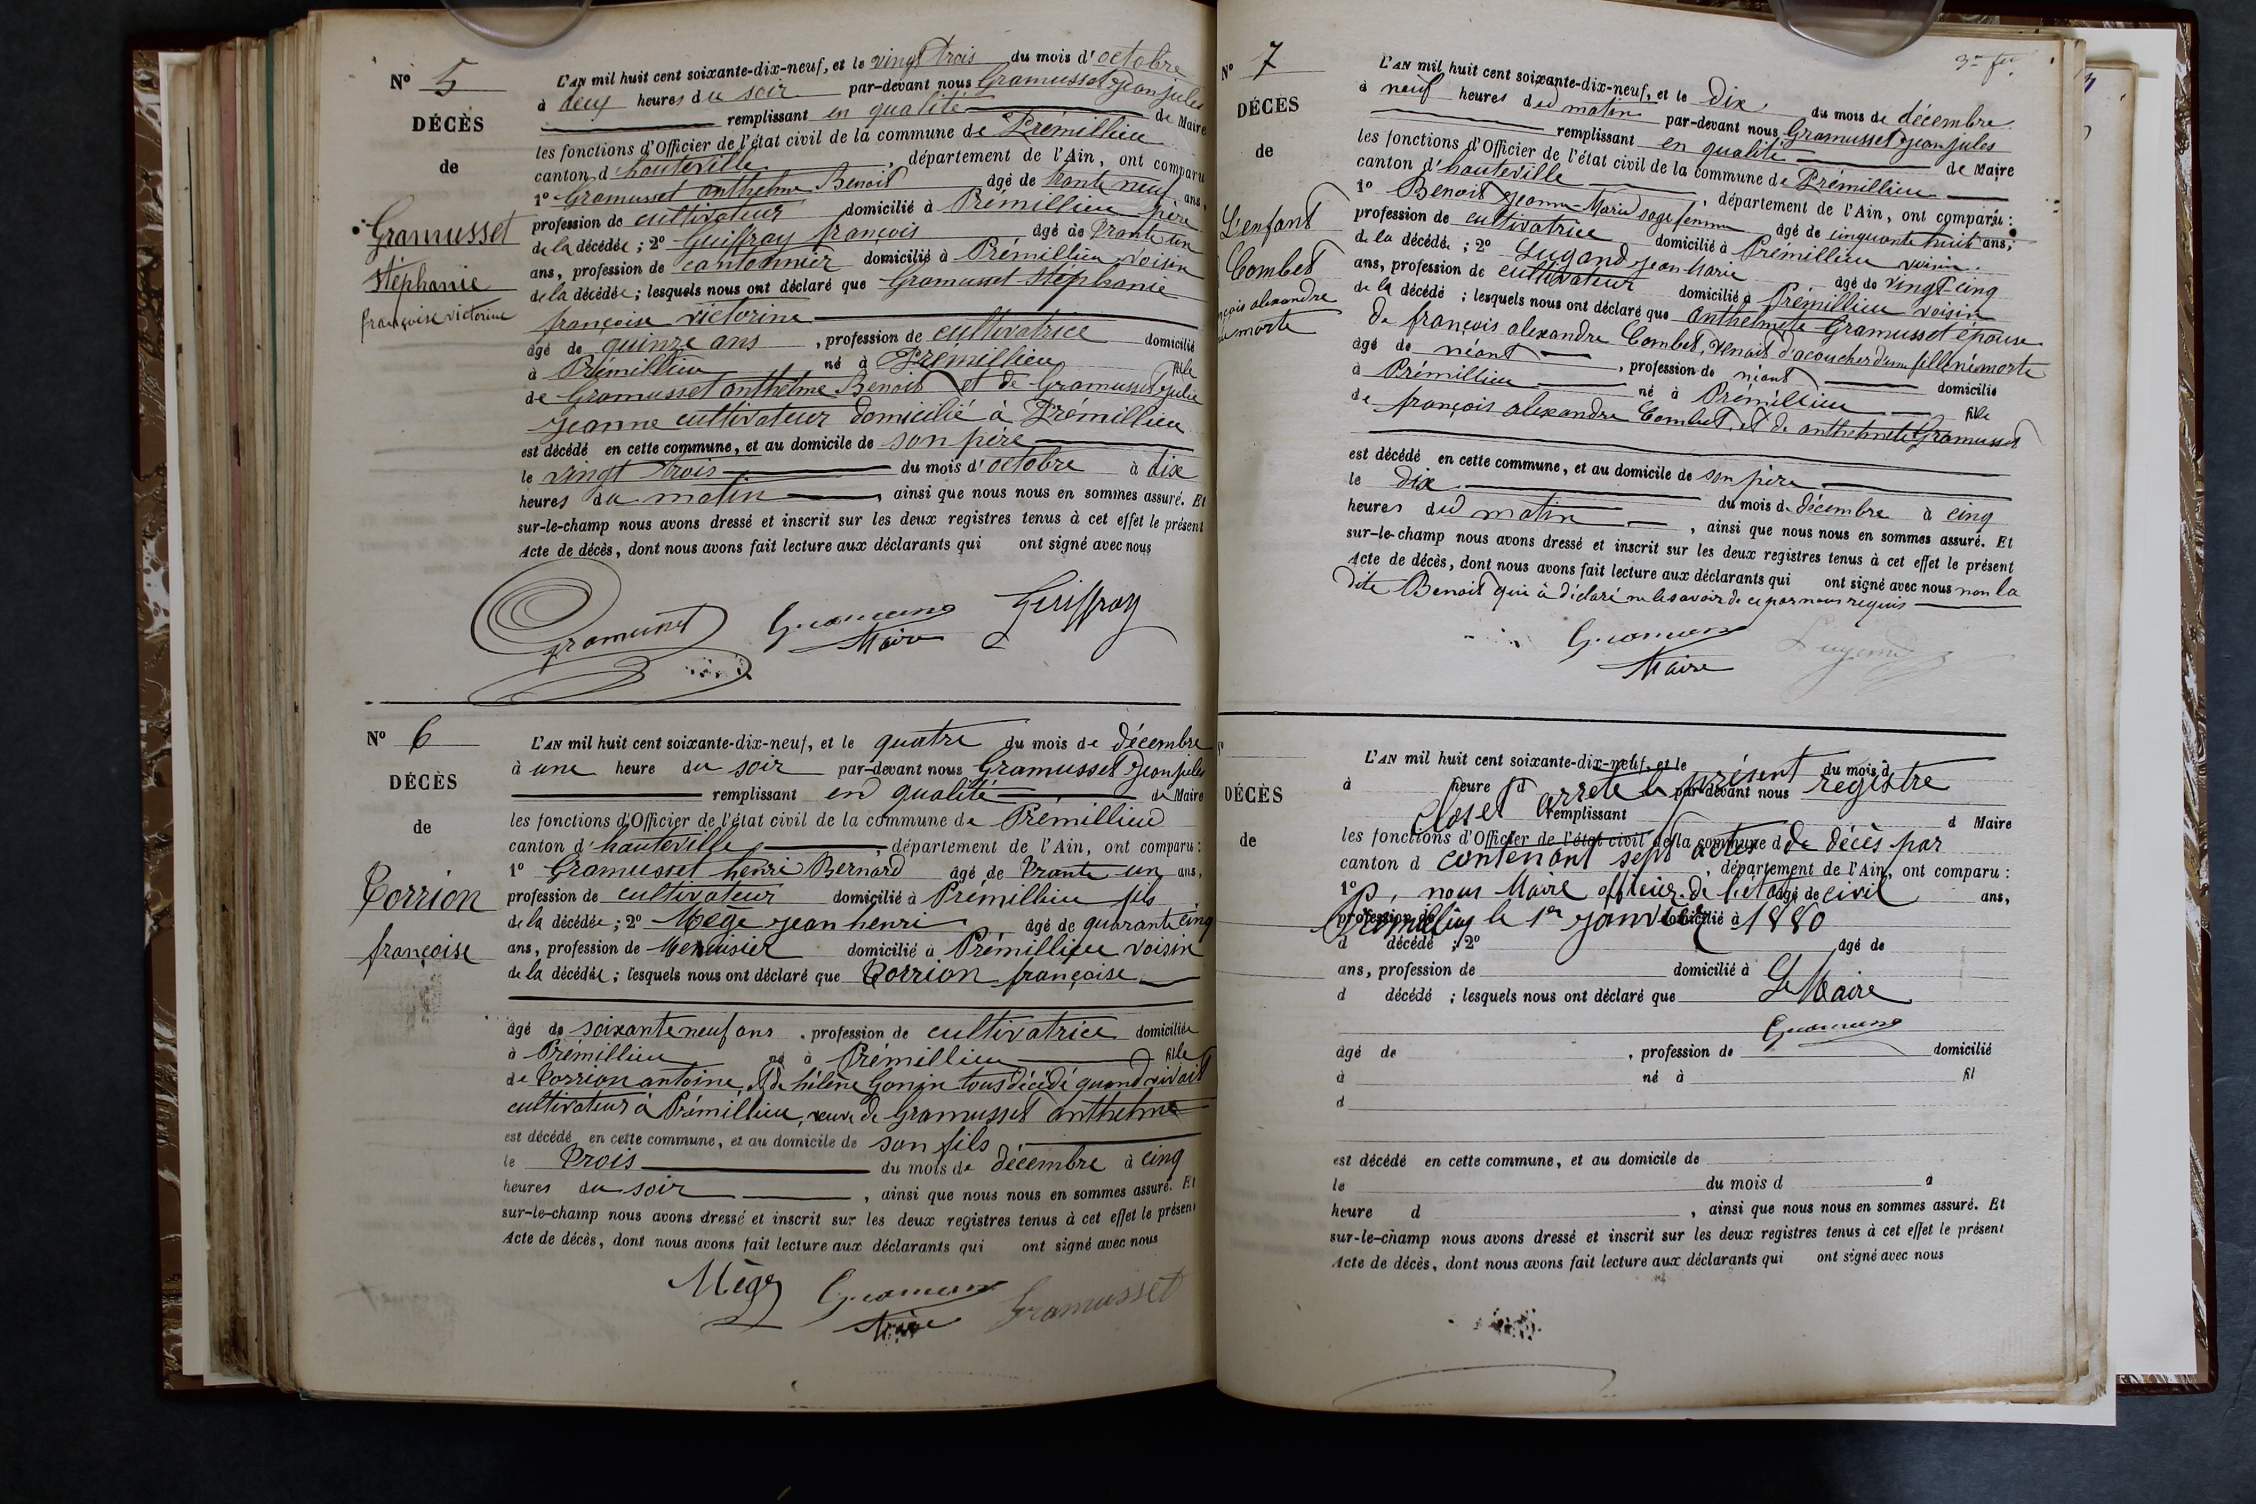 N° 5
DÉCÈS
de
Gramusset
Stéphanie
françoise victorine
L'AN mil huit cent soixante-dix-neuf, et le vingt trois du mois d'octobre
à deux heures du soir par-devant nous Gramusset Jean Jules
remplissant en qualité de Maire
les fonctions d'Officier de l'état civil de la commune de Prémillieu
canton d'hauteville, département de l'Ain, ont comparu
1° Gramusset anthelme Benoit âgé de trante neuf ans,
profession de cultivateur domicilié à Prémillieu père
de la décédée ; 2° Guiffray françois âgé de trante un
ans, profession de cantonnier domicilié à Prémillieu voisin
de la décédée ; lesquels nous ont déclaré que Gramusset Stéphanie
françoise victorine
âgé de quinze ans, profession de cultivatrice domicilié
à Prémillieu né à Prémillieu fille
de Gramusset anthelme Benoit et de Gramusset Julie
Jeanne cultivateur domicilié à Prémillieu
est décédé en cette commune, et au domicile de son père
le vingt trois du mois d'octobre à dix
heures du matin, ainsi que nous nous en sommes assuré. Et
sur-le-champ nous avons dressé et inscrit sur les deux registres tenus à cet effet le présent
Acte de décès, dont nous avons fait lecture aux déclarants qui ont signé avec nous
Gramusset Maire Guiffray
N° 6
DÉCÈS
de
Torrion
françoise
L'AN mil huit cent soixante-dix-neuf, et le quatre du mois de décembre
à une heure du soir par-devant nous Gramusset Jean jules
remplissant en qualité de Maire
les fonctions d'Officier de l'état civil de la commune de Prémillieu
canton d'hauteville, département de l'Ain, ont comparu :
1° Gramusset henri Bernard âgé de trante un ans,
profession de cultivateur domicilié à Prémillieu fils
de la décédée ; 2° Mège Jean henri âgé de quarante cinq
ans, profession de Menuisier domicilié à Prémillieu voisin
de la décédée ; lesquels nous ont déclaré que Torrion françoise
âgé de soixante neuf ans, profession de cultivatrice domiciliée
à Prémillieu né à Prémillieu fille
de Torrion antoine, et de hélène Gonin tous décédé quand vivait
cultivateur à Prémillieu, veuve de Gramusset anthelme
est décédé en cette commune, et au domicile de son fils
le trois du mois de décembre à cinq
heures du soir, ainsi que nous nous en sommes assuré. Et
sur-le-champ nous avons dressé et inscrit sur les deux registres tenus à cet effet le présent
Acte de décès, dont nous avons fait lecture aux déclarants qui ont signé avec nous
Mège Maire Gramusset
N° 7
DÉCÈS
de
L'enfant
Combet
alexandre
morte
L'AN mil huit cent soixante-dix-neuf, et le dix du mois de décembre
à neuf heures du matin par-devant nous Gramusset Jean jules
remplissant en qualité de Maire
les fonctions d'Officier de l'état civil de la commune de Prémillieu
canton d'hauteville, département de l'Ain, ont comparu :
1° Benoit Jeanne-Marie sage femme âgé de cinquante huit ans,
profession de cultivatrice domicilié à Prémillieu voisin
de la décédé ; 2° Lugand Jean Marie âgé de vingt-cinq
ans, profession de cultivateur domicilié à Prémillieu voisin
de la décédé ; lesquels nous ont déclaré que Anthelmete Gramusset épouse
de françois alexandre Combet, venait d'acoucher d'une fille né morte
âgé de néant, profession de néant domicilié
à Prémillieu né à Prémillieu fille
de françois alexandre Combet, et de anthelmete Gramusset
est décédé en cette commune, et au domicile de son père
le dix du mois de décembre à cinq
heures du matin, ainsi que nous nous en sommes assuré. Et
sur-le-champ nous avons dressé et inscrit sur les deux registres tenus à cet effet le présent
Acte de décès, dont nous avons fait lecture aux déclarants qui ont signé avec nous non la
dite Benoit qui à déclaré ne le savoir de ce par nous requis
Maire Lugand
DÉCÈS
de
L'AN mil huit cent soixante-dix-neuf, et le du mois d
à heure d par-devant nous
Clos et arrêté le présent registre
remplissant d Maire
les fonctions d'Officier de l'état civil de la commune d
contenant sept actes de décès par
canton d, département de l'Ain, ont comparu :
1° âgé de ans,
nous Maire officier de l'état civil
profession de domicilié à
Prémillieu le 1er janvier 1880
d décédé ; 2° âgé de
ans, profession de domicilié à
Le Maire
d décédé ; lesquels nous ont déclaré que
âgé de, profession de domicilié
à né à fil
d
est décédé en cette commune, et au domicile de
le du mois d à
heure d, ainsi que nous nous en sommes assuré. Et
sur-le-champ nous avons dressé et inscrit sur les deux registres tenus à cet effet le présent
Acte de décès, dont nous avons fait lecture aux déclarants qui ont signé avec nous